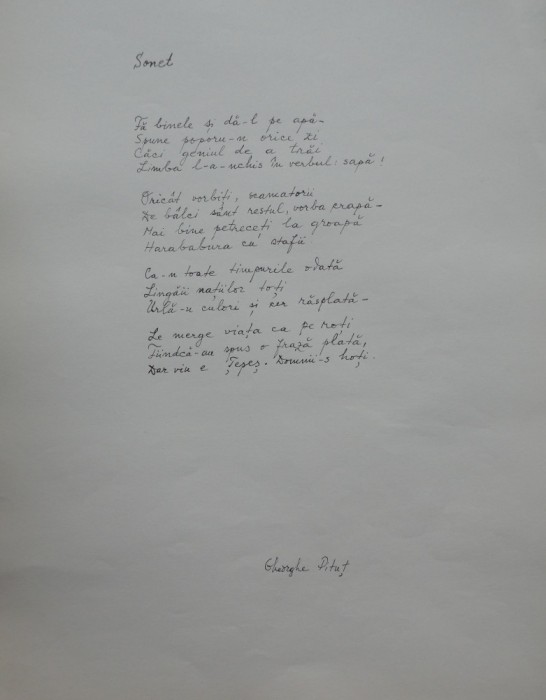 Sonet
Fă binele și dă-l pe apă –
Spune poporu-n orice zi
Căci geniul de a trăi
Limba l-a-nchis în verbul: sapă!
Oricât vorbiți, scamatorii
De bâlci sunt restul, vorba crapă –
Mai bine petreceți la groapă
Harababura cu stafii.
Ca-n toate timpurile odată
Lingăii națiilor toți
Urlă-n culori și cer răsplată –
Le merge viața ca pe roți
Fiindcă-au spus o frază plată,
Dar viu e Țepeș. Domnii-s hoți.
Gheorghe Pituț